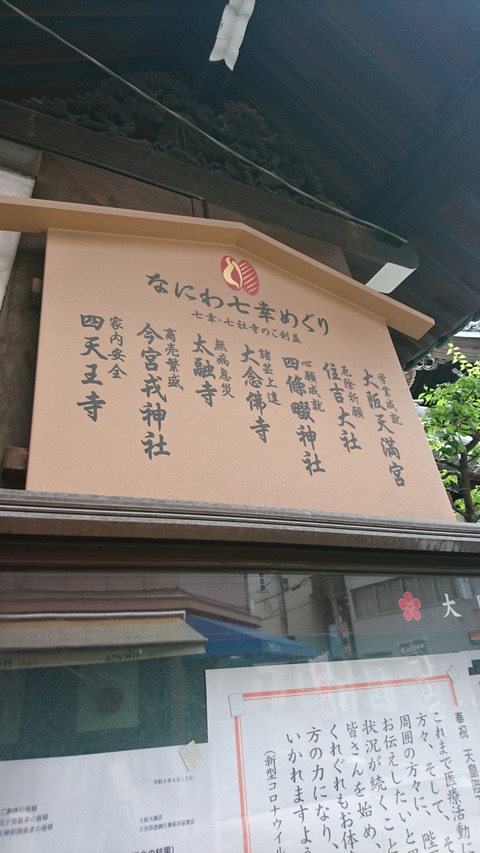 なにわ七幸めぐり
七幸・七社寺のご利益
学業成就
大阪天満宮
厄除祈願
住吉大社
心願成就
四條畷神社
諸芸上達
大念佛寺
無病息災
太融寺
商売繁盛
今宮戎神社
家内安全
四天王寺
大
奉祝 天皇陛
これまで医療活動に
方々、そして、
周囲の方々に、
お伝えしたいと
状況が続くこと
皆さんを始め、
くれぐれもお体
方の力になり、
いかれますよう
(新型コロナウイル
令和2年4月12日
ご参拝の皆様
天神祭関係者の皆様
大阪天満宮